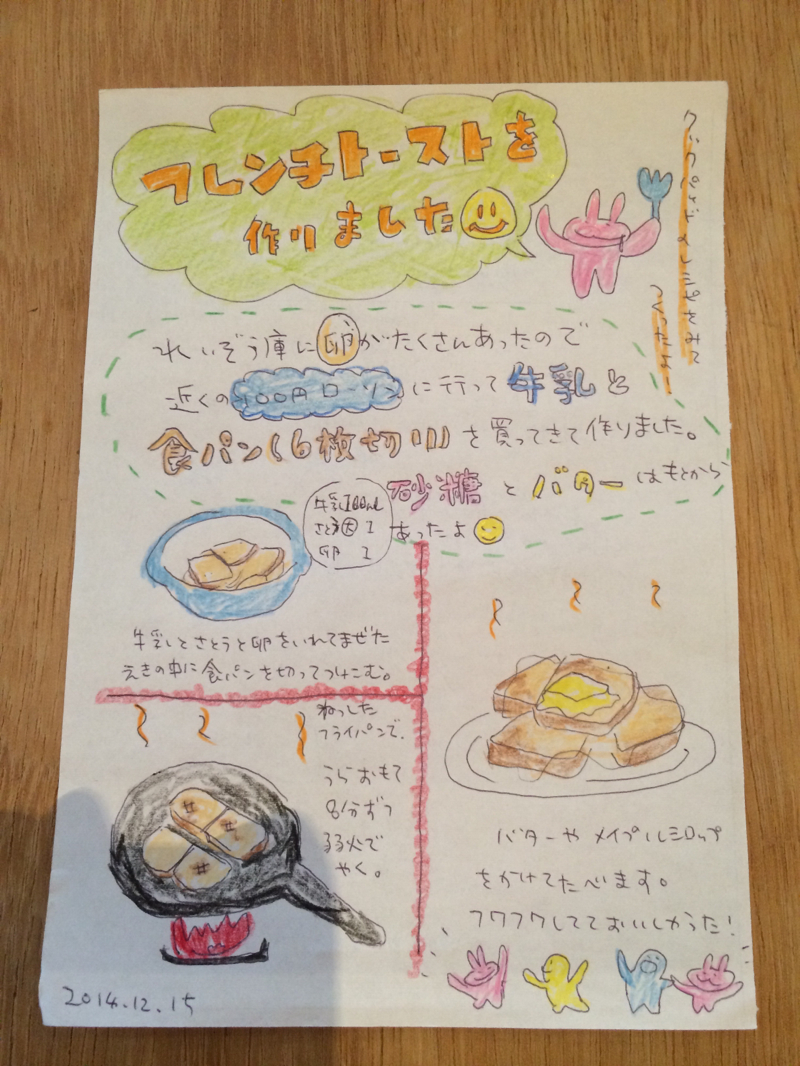 フレンチトーストを
作りました
クックパッドのレシピをみて
つくったよー
れいぞう庫に卵がたくさんあったので
近くの100円ローソンに行って牛乳と
食パン(6枚切り)を買ってきて作りました。
砂糖とバターはもとから
あったよ
牛乳100ml
さとう大1
卵 1
牛乳とさとうと卵をいれてまぜた
えきの中に食パンを切ってつけこむ。
ねっした
フライパンで、
うらおもて
8分ずつ
弱火で
やく。
バターやメイプルシロップ
をかけてたべます。
フワフワしてておいしかった!
2014.12.15